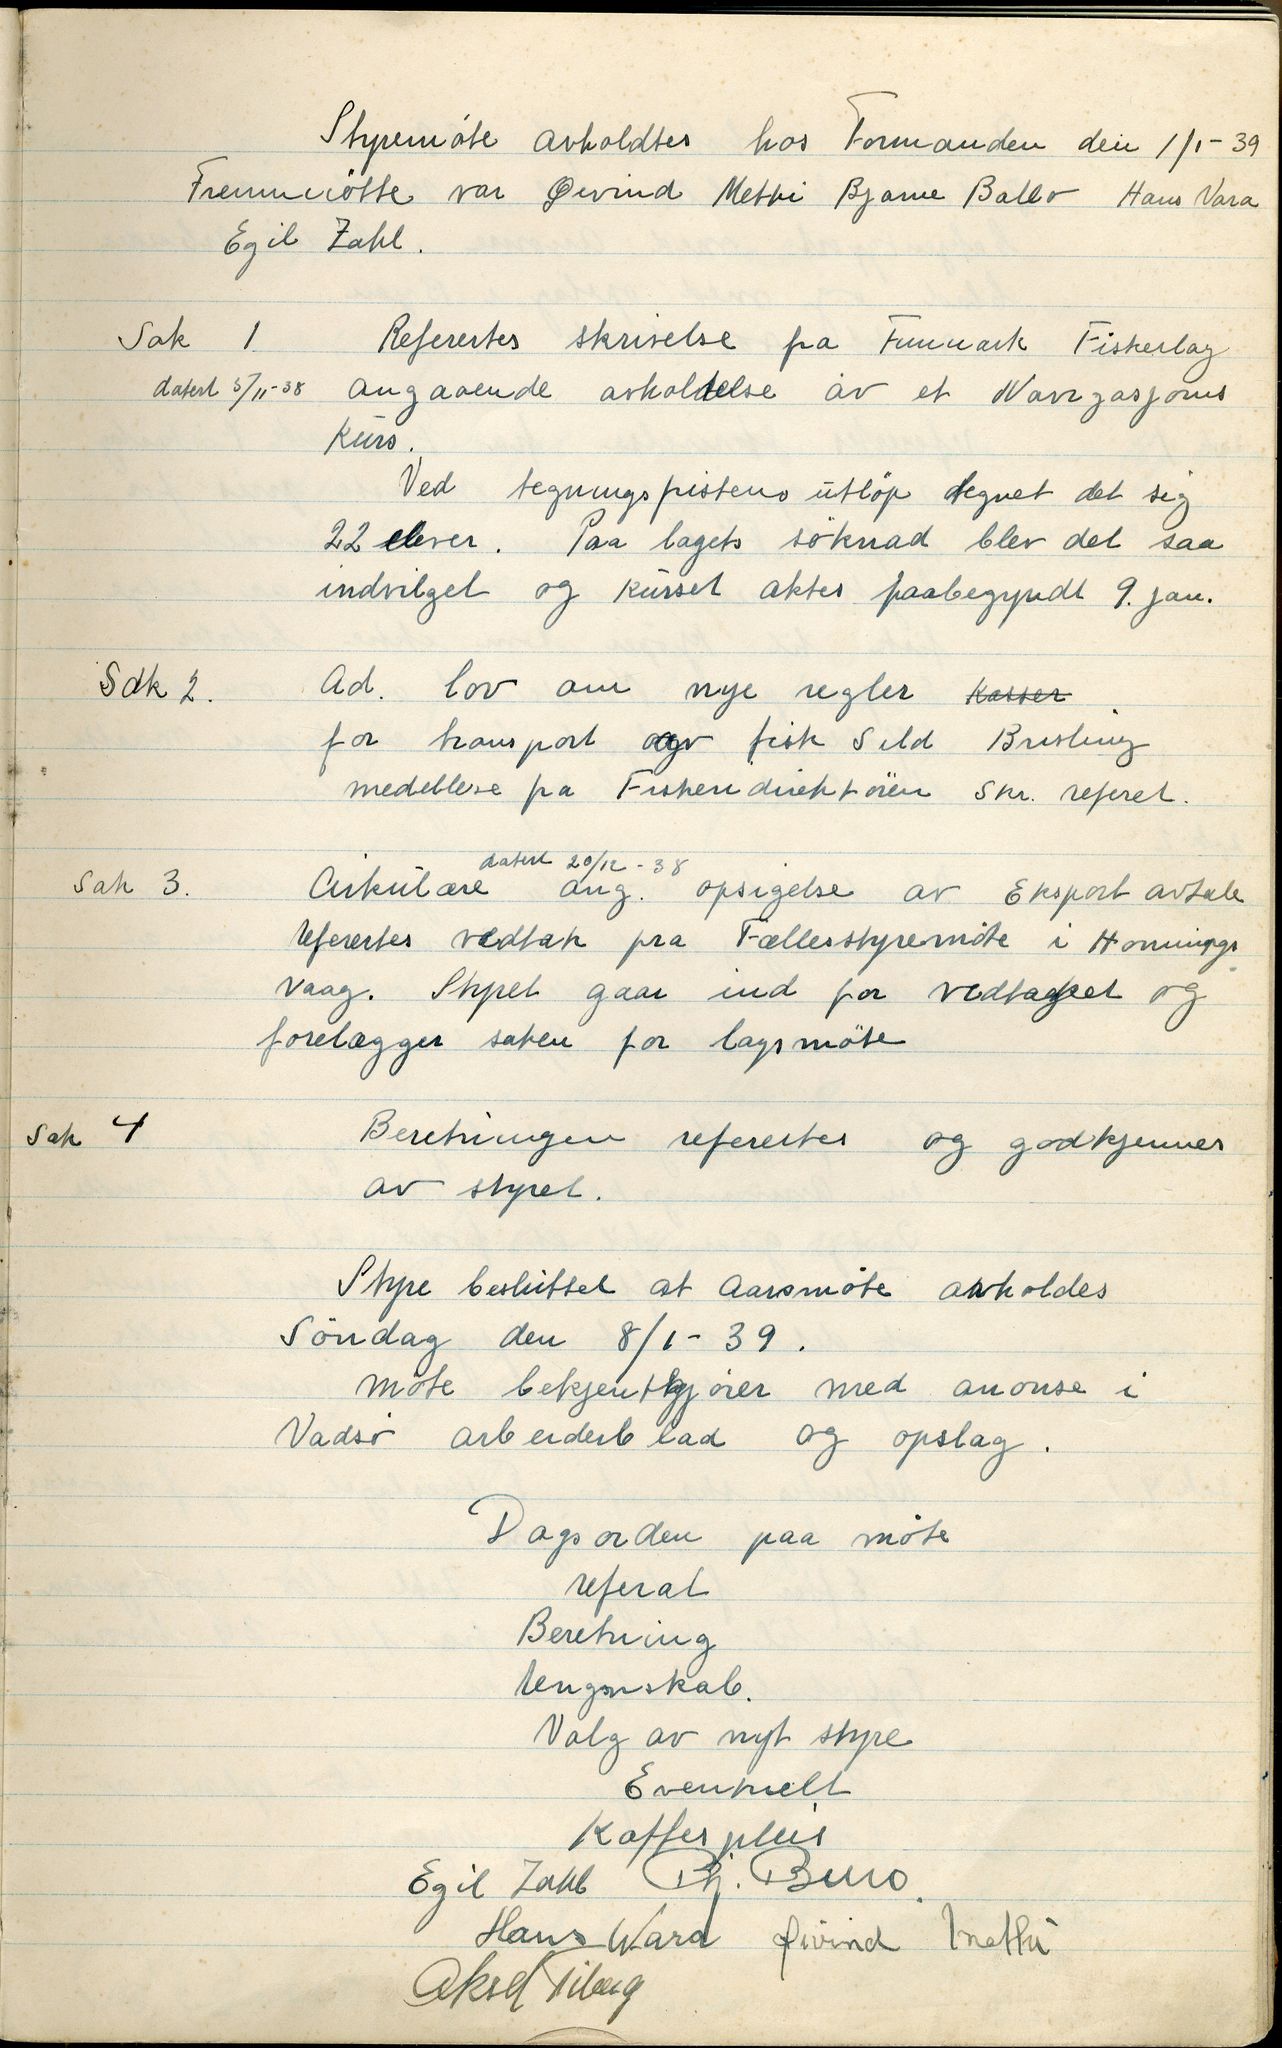 Styremöte avholdtes hos Formanden den 1/1-39
Fremmötte var Øivind Methi Bjarne Ballo Hans Vara
Egil Zahl.
Sak 1 Referertes skrivelse fra Finmark Fiskerlag
datert 5/11-38 angaaende avholdelse av et Navigasjons
Kurs.
Ved tegningsfristens utlöp tegnet det sig
22 elever. Paa lagets söknad blev det saa
indvilget og Kurset aktes paabegyndt 9. jan.
Sak 2. Ad. lov om nye regler Kasser
for transport av fisk Sild Brisling
medellese fra Fiskeridirektören Skr. referet.
datert 20/12-38
Sak 3. Cirkulære ang. opsigelse av Eksport avtale
referertes vedtak fra Fællesstyremöte i Honnings
vaag. Styret gaar ind for vedtaket og
forelægger saken for lagsmöte
Sak 4 Beretningen referertes og godkjennes
av styret.
Styre besluttet at Aarsmöte avholdes
Söndag den 8/1-39.
möte bekjentgjörer med anonse i
Vadsö arbeiderblad og opslag.
Dagsorden paa möte
referat
Beretning
Rengnskab.
Valg av nyt styre
Eventuelt
Egil Zahl Bj.
Hans Wara Øivind Methi
Aksel